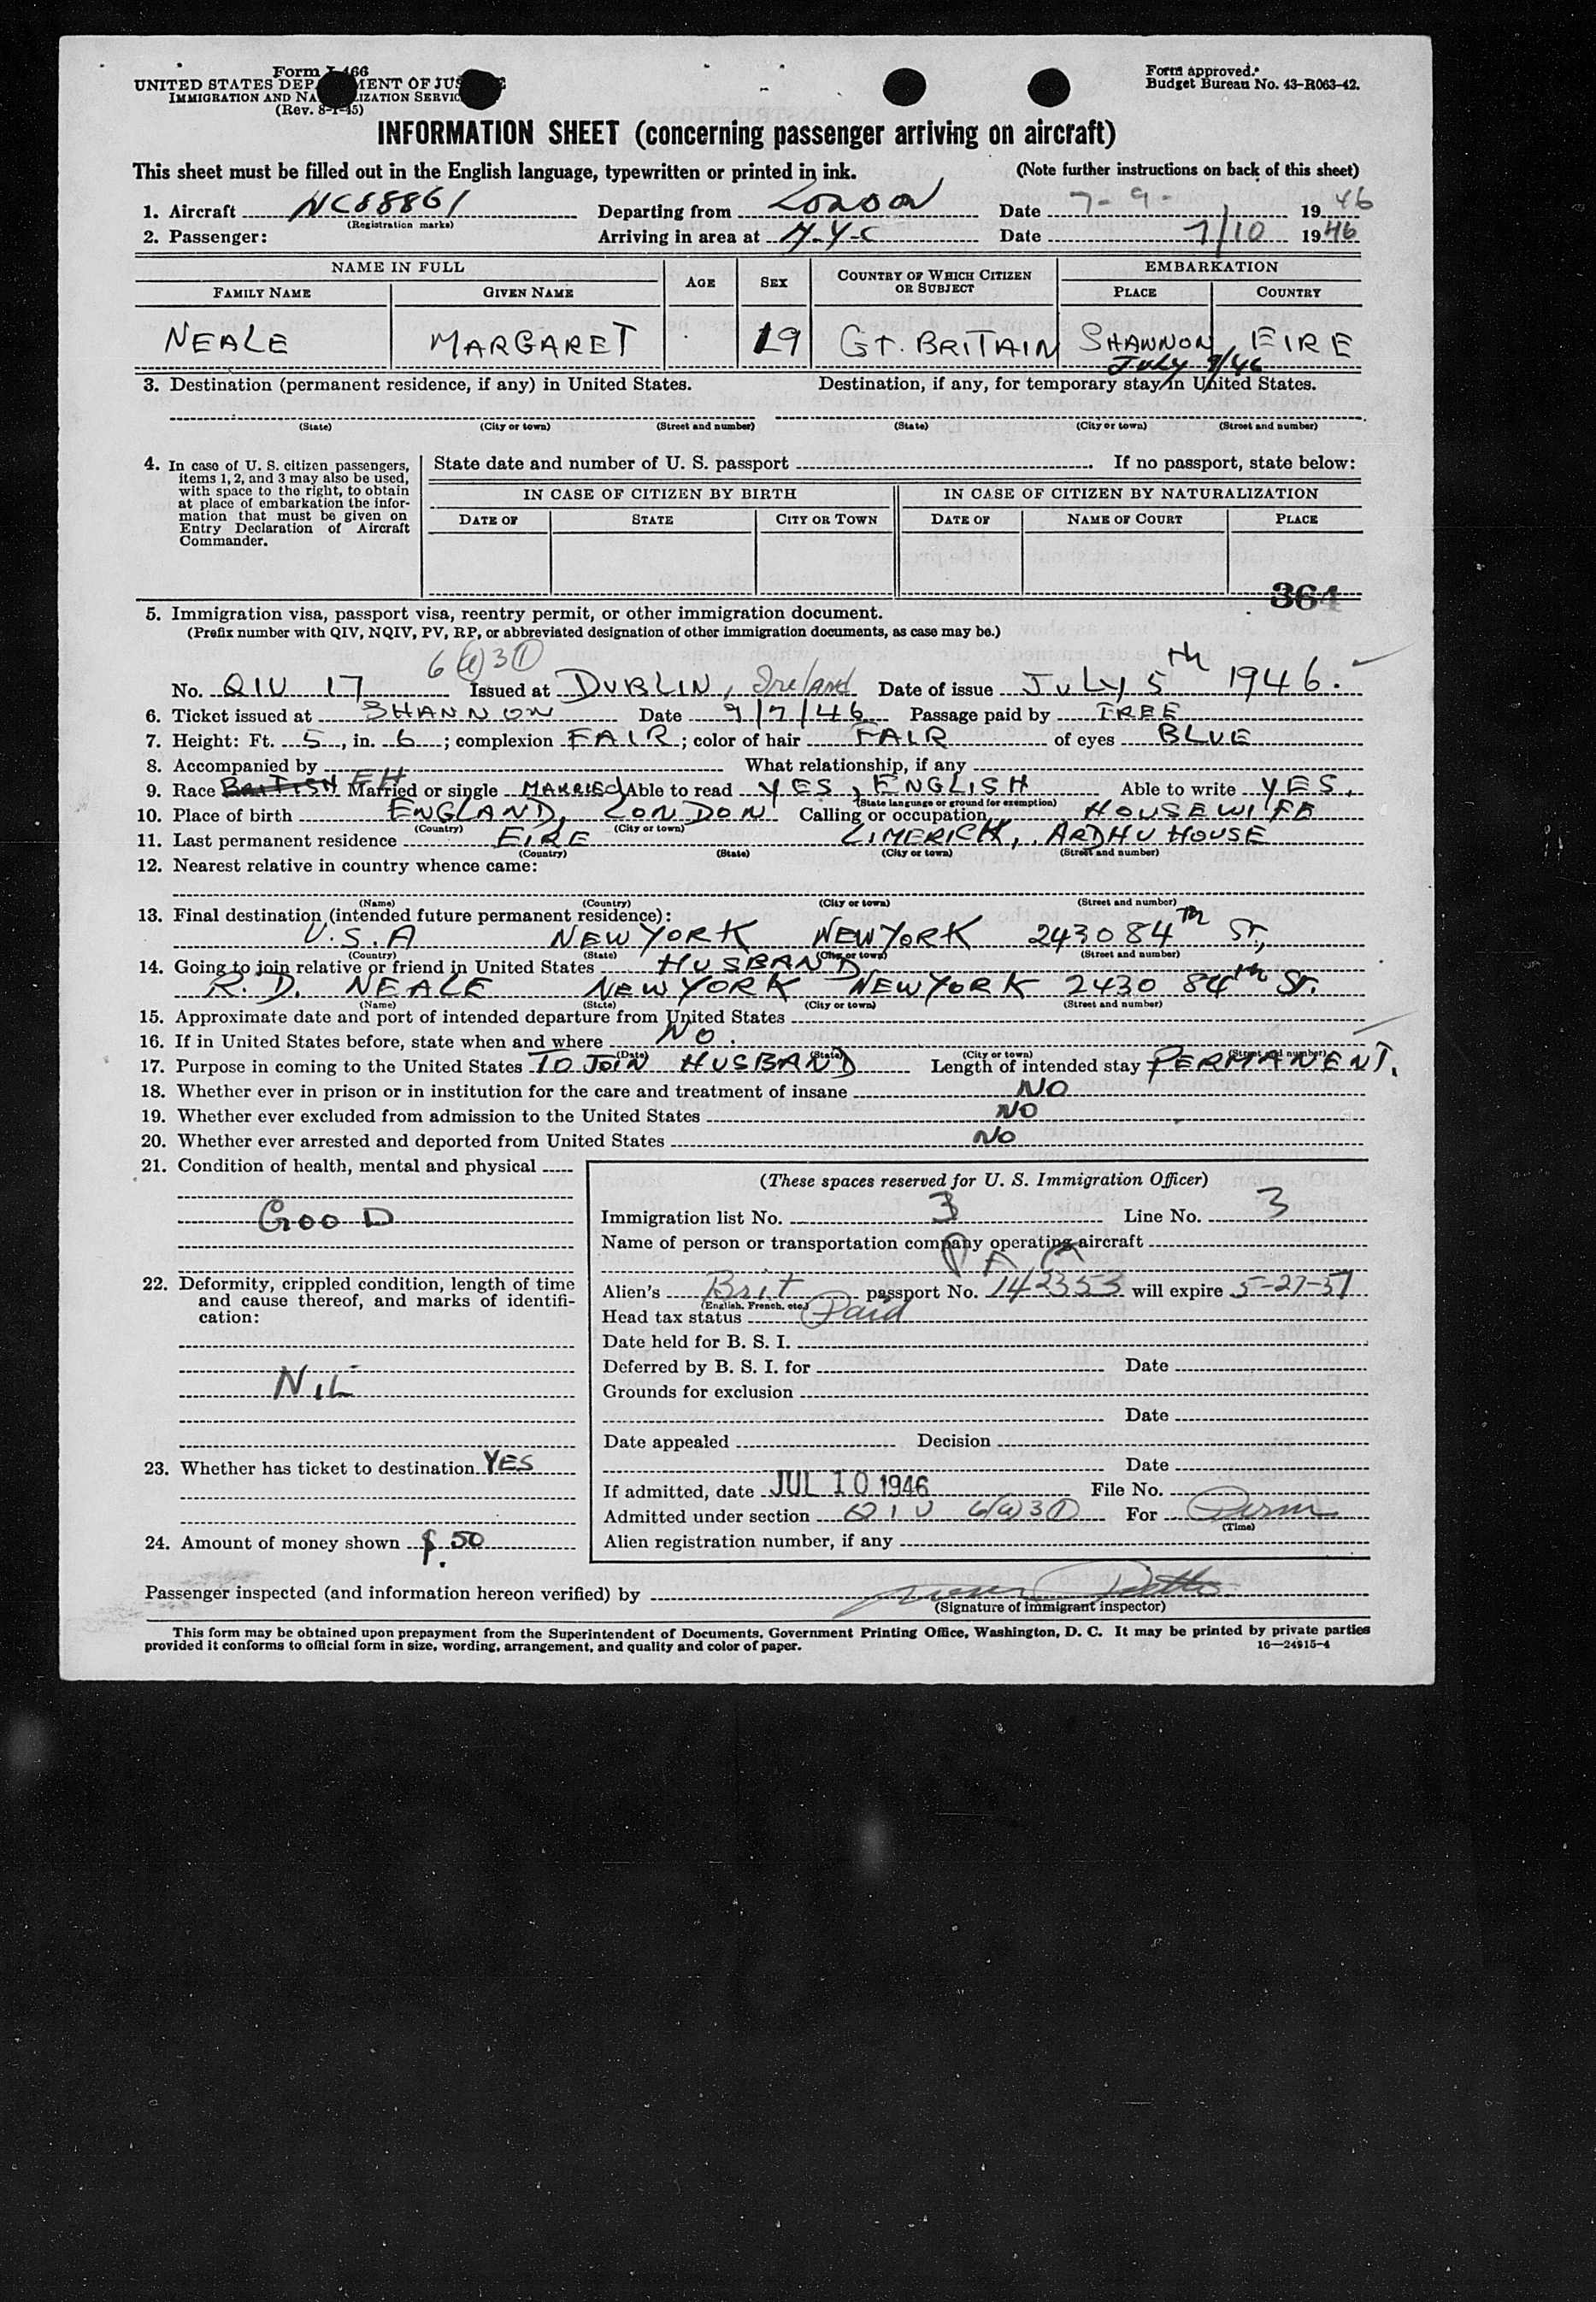 Form I-466
UNITED STATES DEPARTMENT OF JUSTICE
IMMIGRATION AND NATURALIZATION SERVICE
(Rev. 8-1-45)
Form approved.
Budget Bureau No. 43-R063-42.
INFORMATION SHEET (concerning passenger arriving on aircraft)
This sheet must be filled out in the English language, typewritten or printed in ink. (Note further instructions on back of this sheet)
1. Aircraft NC88861 Departing from LONDON Date 7-9- 1946
(Registration marks)
2. Passenger: Arriving in area at N.Y.C Date 7/10 1946
NAME IN FULL AGE SEX COUNTRY OF WHICH CITIZEN OR SUBJECT EMBARKATION
FAMILY NAME GIVEN NAME PLACE COUNTRY
NEALE MARGARET 19 GT. BRITAIN SHANNON EIRE
July 9/46
3. Destination (permanent residence, if any) in United States. Destination, if any, for temporary stay in United States.
(State) (City or town) (Street and number) (State) (City or town) (Street and number)
4. In case of U. S. citizen passengers, items 1, 2, and 3 may also be used, with space to the right, to obtain at place of embarkation the information that must be given on Entry Declaration of Aircraft Commander.
State date and number of U. S. passport If no passport, state below:
IN CASE OF CITIZEN BY BIRTH IN CASE OF CITIZEN BY NATURALIZATION
DATE OF STATE CITY OR TOWN DATE OF NAME OF COURT PLACE
364
5. Immigration visa, passport visa, reentry permit, or other immigration document.
(Prefix number with QIV, NQIV, PV, RP, or abbreviated designation of other immigration documents, as case may be.)
6(a)3(1)
No. QIV 17 Issued at DUBLIN, Ireland Date of issue JULY 5th 1946.
6. Ticket issued at SHANNON Date 9/7/46 Passage paid by FREE
7. Height: Ft. 5, in. 6; complexion FAIR; color of hair FAIR of eyes BLUE
8. Accompanied by What relationship, if any
9. Race BRITISH EH Married or single MARRIED Able to read YES, ENGLISH Able to write YES.
(State language or ground for exemption)
10. Place of birth ENGLAND, LONDON Calling or occupation HOUSEWIFE
(Country) (City or town)
11. Last permanent residence EIRE LIMERICK, ARDHU HOUSE
(Country) (State) (City or town) (Street and number)
12. Nearest relative in country whence came:
(Name) (Country) (City or town) (Street and number)
13. Final destination (intended future permanent residence):
U.S.A NEW YORK NEW YORK 2430 84th ST,
(Country) (State) (City or town) (Street and number)
14. Going to join relative or friend in United States HUSBAND
R. D. NEALE NEW YORK NEW YORK 2430 84th ST.
(Name) (State) (City or town) (Street and number)
15. Approximate date and port of intended departure from United States
16. If in United States before, state when and where NO.
(Date) (State) (City or town) (Street and number)
17. Purpose in coming to the United States TO JOIN HUSBAND Length of intended stay PERMANENT.
18. Whether ever in prison or in institution for the care and treatment of insane NO
19. Whether ever excluded from admission to the United States NO
20. Whether ever arrested and deported from United States NO
21. Condition of health, mental and physical
GOOD
22. Deformity, crippled condition, length of time and cause thereof, and marks of identification:
NIL
23. Whether has ticket to destination YES
24. Amount of money shown $.50
(These spaces reserved for U. S. Immigration Officer)
Immigration list No. 3 Line No. 3
Name of person or transportation company operating aircraft
P A A
Alien's Brit passport No. 142353 will expire 5-27-51
(English, French, etc.)
Head tax status Paid
Date held for B. S. I.
Deferred by B. S. I. for Date
Grounds for exclusion
Date
Date appealed Decision
Date
If admitted, date JUL 10 1946 File No.
Admitted under section QIV 6(a)3(1) For Perm
(Time)
Alien registration number, if any
Passenger inspected (and information hereon verified) by
(Signature of immigrant inspector)
This form may be obtained upon prepayment from the Superintendent of Documents, Government Printing Office, Washington, D. C. It may be printed by private parties
provided it conforms to official form in size, wording, arrangement, and quality and color of paper. 16—24915-4